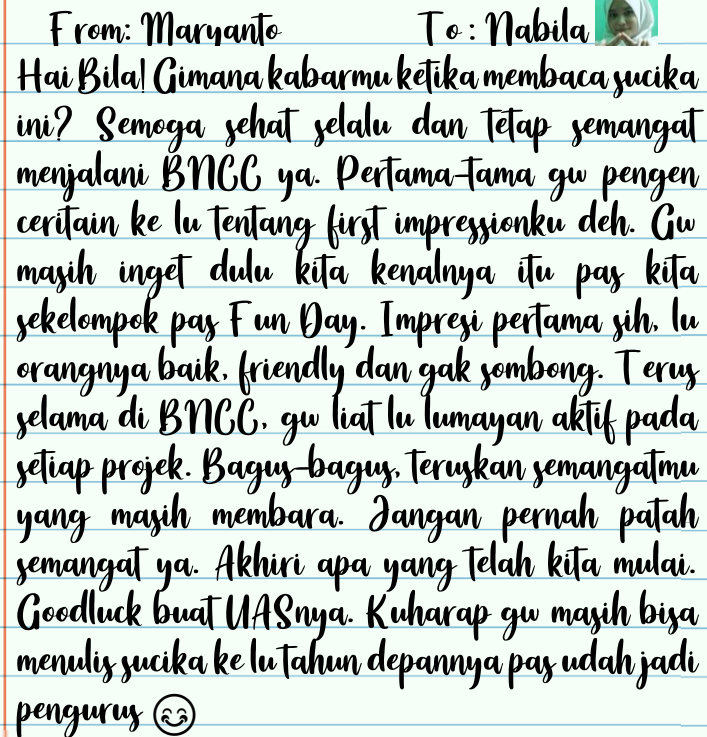 From: Maryanto To : Nabila
Hai Bila! Gimana kabarmu ketika membaca sucika
ini? Semoga sehat selalu dan tetap semangat
menjalani BNCC ya. Pertama-tama gw pengen
ceritain ke lu tentang first impressionku deh. Gw
masih inget dulu kita kenalnya itu pas kita
sekelompok pas Fun Day. Impresi pertama sih, lu
orangnya baik, friendly dan gak sombong. Terus
selama di BNCC, gw liat lu lumayan aktif pada
setiap projek. Bagus-bagus, teruskan semangatmu
yang masih membara. Jangan pernah patah
semangat ya. Akhiri apa yang telah kita mulai.
Goodluck buat UASnya. Kuharap gw masih bisa
menulis sucika ke lu tahun depannya pas udah jadi
pengurus 😊